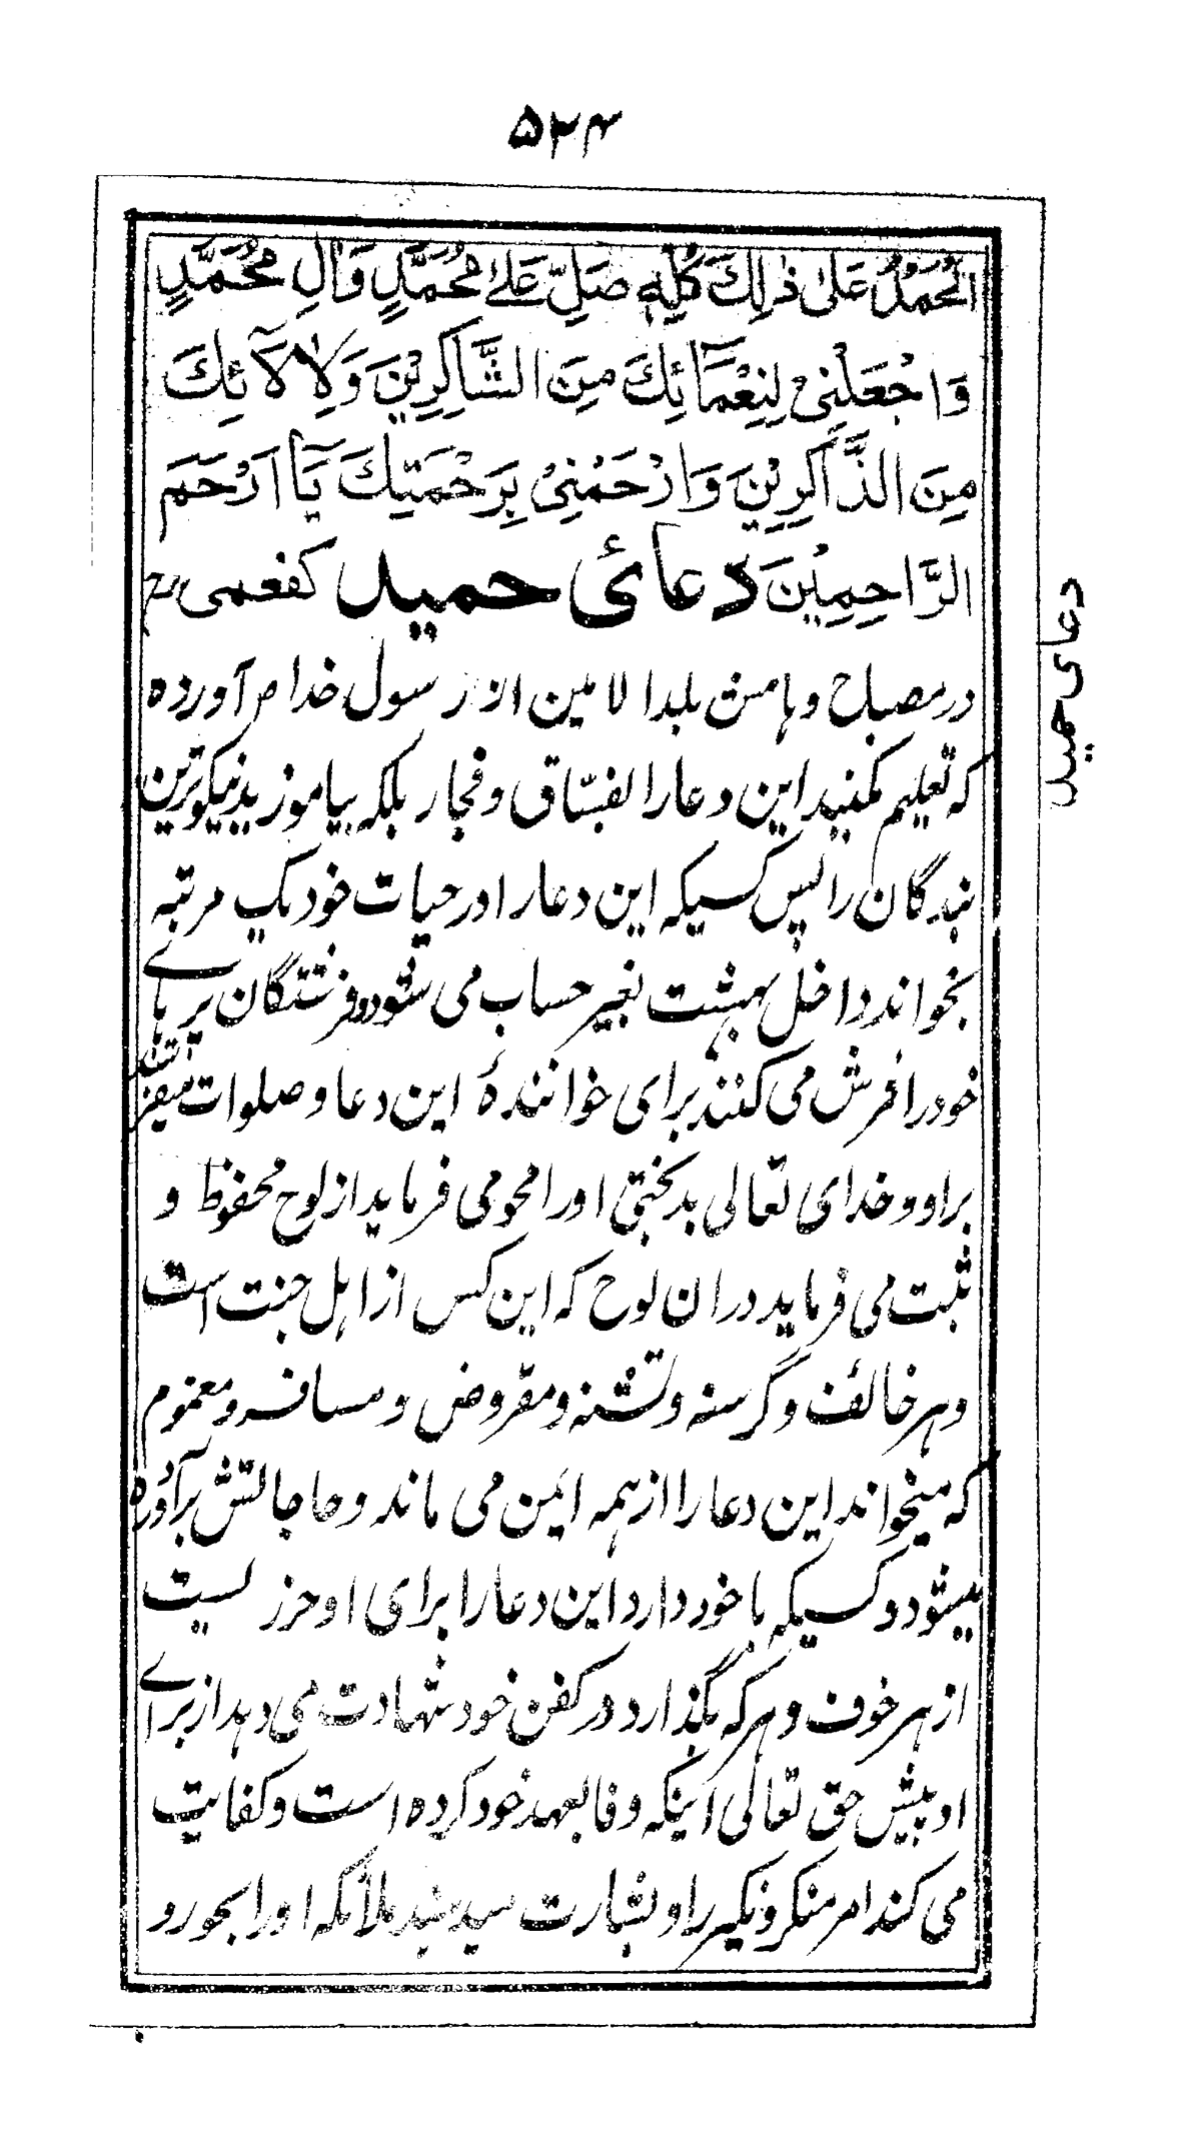 ۵۲۴
اَلْحَمْدُ عَلىٰ ذٰلِكَ كُلِّهٖ صَلِّ عَلىٰ مُحَمَّدٍ وَّاٰلِ مُحَمَّدٍ
وَاجْعَلْنِيْ لِنِعْمَآئِكَ مِنَ الشَّاكِرِيْنَ وَلِاٰلَآئِكَ
مِنَ الذَّاكِرِيْنَ وَارْحَمْنِيْ بِرَحْمَتِكَ يَآ اَرْحَمَ
الرَّاحِمِيْنَ دعائ حمید کفعمی رح
در مصباح و هامش بلد الامین از رسول خدا ص آورده
که تعلیم مکنید این دعا را بفسّاق و فجار بلکه بیاموزید نیکوترین
بندگان را پس کسیکه این دعا را در حیات خود یک مرتبه
بخواند داخل بهشت بغیر حساب می شود و فرشتگان پرهاے
خود را فرش می کنند برای خوانندۂ این دعا و صلوات میفرستند
بر او و خدای تعالی بدبختی او را محو می فرماید از لوح محفوظ و
ثبت می فرماید در ان لوح که این کس از اهل جنت است
و هر خائف و گرسنه و تشنه و مقروض و مسافر و مغموم
که میخواند این دعا را از همه ایمن می ماند و حاجاتش برآورده
میشود و کسیکه با خود دارد این دعا را برای او حرز یست
از هر خوف و هر که بگذارد در کفن خود شهادت می دهد از براے
او پیش حق تعالی اینکه وفا بعهد خود کرده است و کفایت
می کند امر منکر و نکیر را و بشارت میدهند ملائکه او را بحور و
دعای حمید